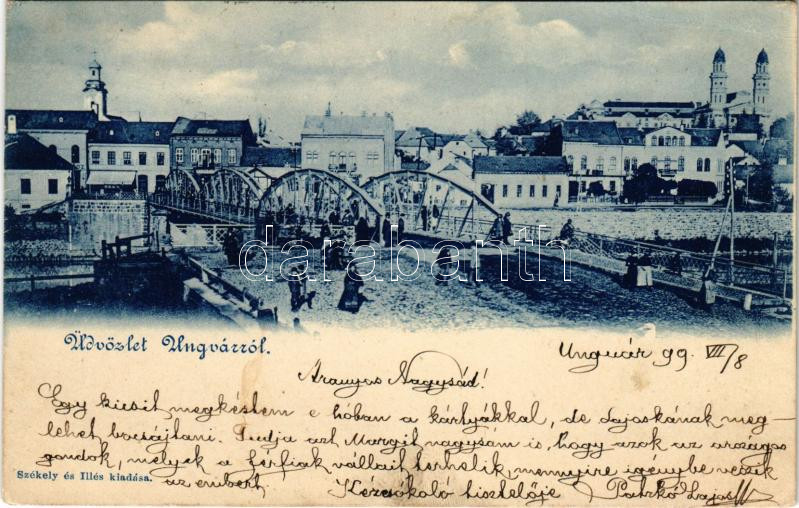 darabanth
Üdvözlet Ungvárról.
Ungvár 99 VII/8
Aranyos Nagysád!
Egy kicsit megkéstem e hóban a kártyákkal, de Lajoskának meg-
lehet bocsájtani. Tudja azt Margit nagysám is, hogy azok az országos
gondok, melyek a férfiak vállait terhelik mennyire igénybe veszik
az embert. Kézcsókoló tisztelője Patzkó Lajos
Székely és Illés kiadása.